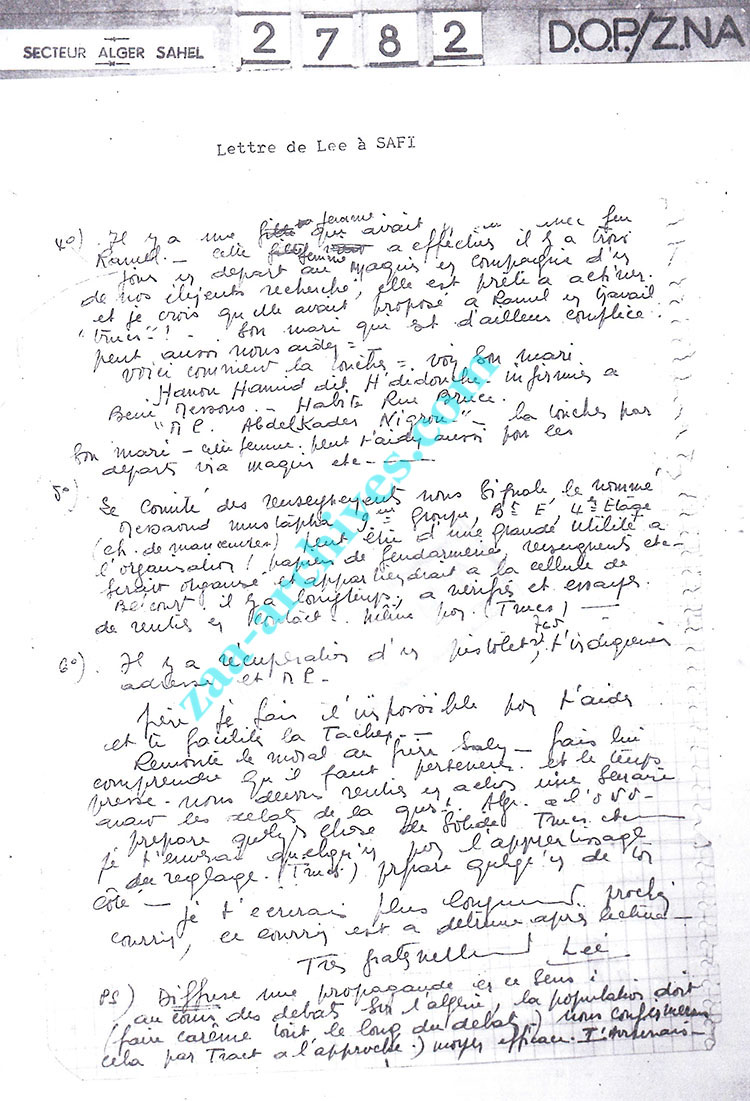 SECTEUR ALGER SAHEL
2 7 8 2
D.O.P./Z.NA
Lettre de Lee à SAFÏ
4°) . Il y a une femme qui avait feu
Ramel. – cette femme a effectué il y a trois
jours un départ au Maquis en compagnie d'un
de nos éléments recherché, elle est prête à activer.
et je crois qu'elle avait proposé à Ramel un travail
"Trucs"! – Son mari qui est d'ailleur complice.
peut aussi nous aider = –
Voici comment la toucher = voir son mari
Hanon Hamid dit H'didouche infirmier a
Beni Messous. – Habite Rue Bruce.
"M P. Abdelkader Nigrou" – la toucher par
Son mari – cette femme peut t'aider aussi pour les
départs via maquis etc – –
5°) Le Comité des renseignements nous signale le nommé
Messaoud Mustapha, groupe, Bt E, 4e Etage
(ch. de manœuvres) peut être d'une grande utilité a
l'organisation! papiers de gendarmerie, renseignements etc –
serait organisé et appartiendrait a la cellule de
Belcourt il y a longtemps. a vérifier et essayer.
de rentrer en contact. même pour (Trucs) –
6°) . Il y a récupération d'un pistolet 7,65, t'indiquerai
adresse et M P. –
frère je fais l'impossible pour t'aider
et te facilite la Tache, –
Remonte le moral au frère Saly – fais lui
comprendre qu'il faut persévérer. et le temps
presse. nous devons rentrer en action une semaine
avant les débats de la ques. Alg. a l'O N U –
prépare quelque chose de solide Trucs etc
je t'enverrai quelqu'un pour l'apprentissage
du reglage. (Trucs.) prépare quelqu'un de ton
côté –
je t'écrirais plus longuement prochain
courrier, ce courrier est a détruire après lecture –
Très fraternellement Lee
PS) Diffuse une propagande en ce sens :
au cours des débats sur l'algérie, la population doit
(faire carême tout le long du débat) nous confirmerons
cela par Tract a l'approche.) moyen efficace.
zaa-archives.com